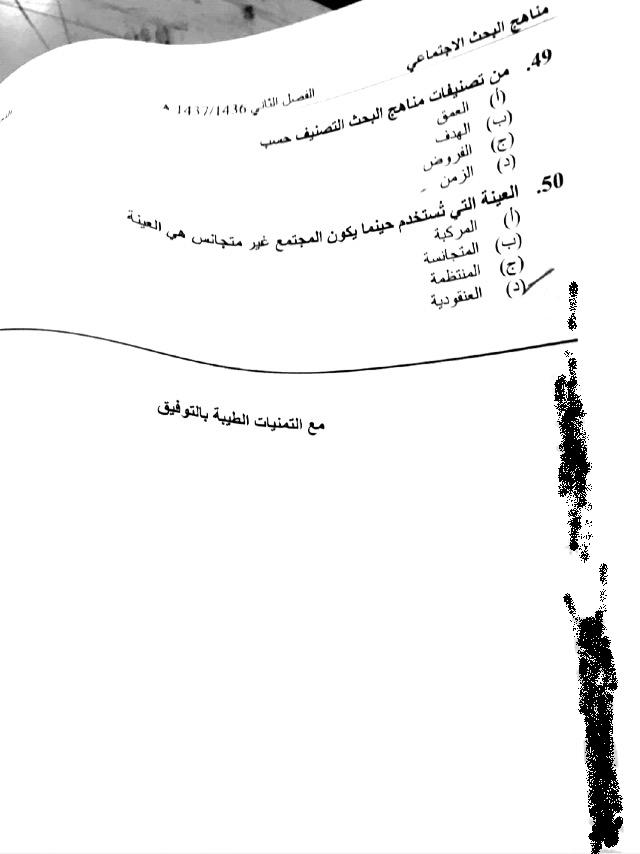 مناهج البحث الاجتماعي
الفصل الثاني 1437/1436 هـ
49. من تصنيفات مناهج البحث التصنيف حسب
(أ) العمق
(ب) الهدف
(ج) الفروض
(د) الزمن
50. العينة التي تُستخدم حينما يكون المجتمع غير متجانس هي العينة
(أ) المركبة
(ب) المتجانسة
(ج) المنتظمة
(د) العنقودية
مع التمنيات الطيبة بالتوفيق